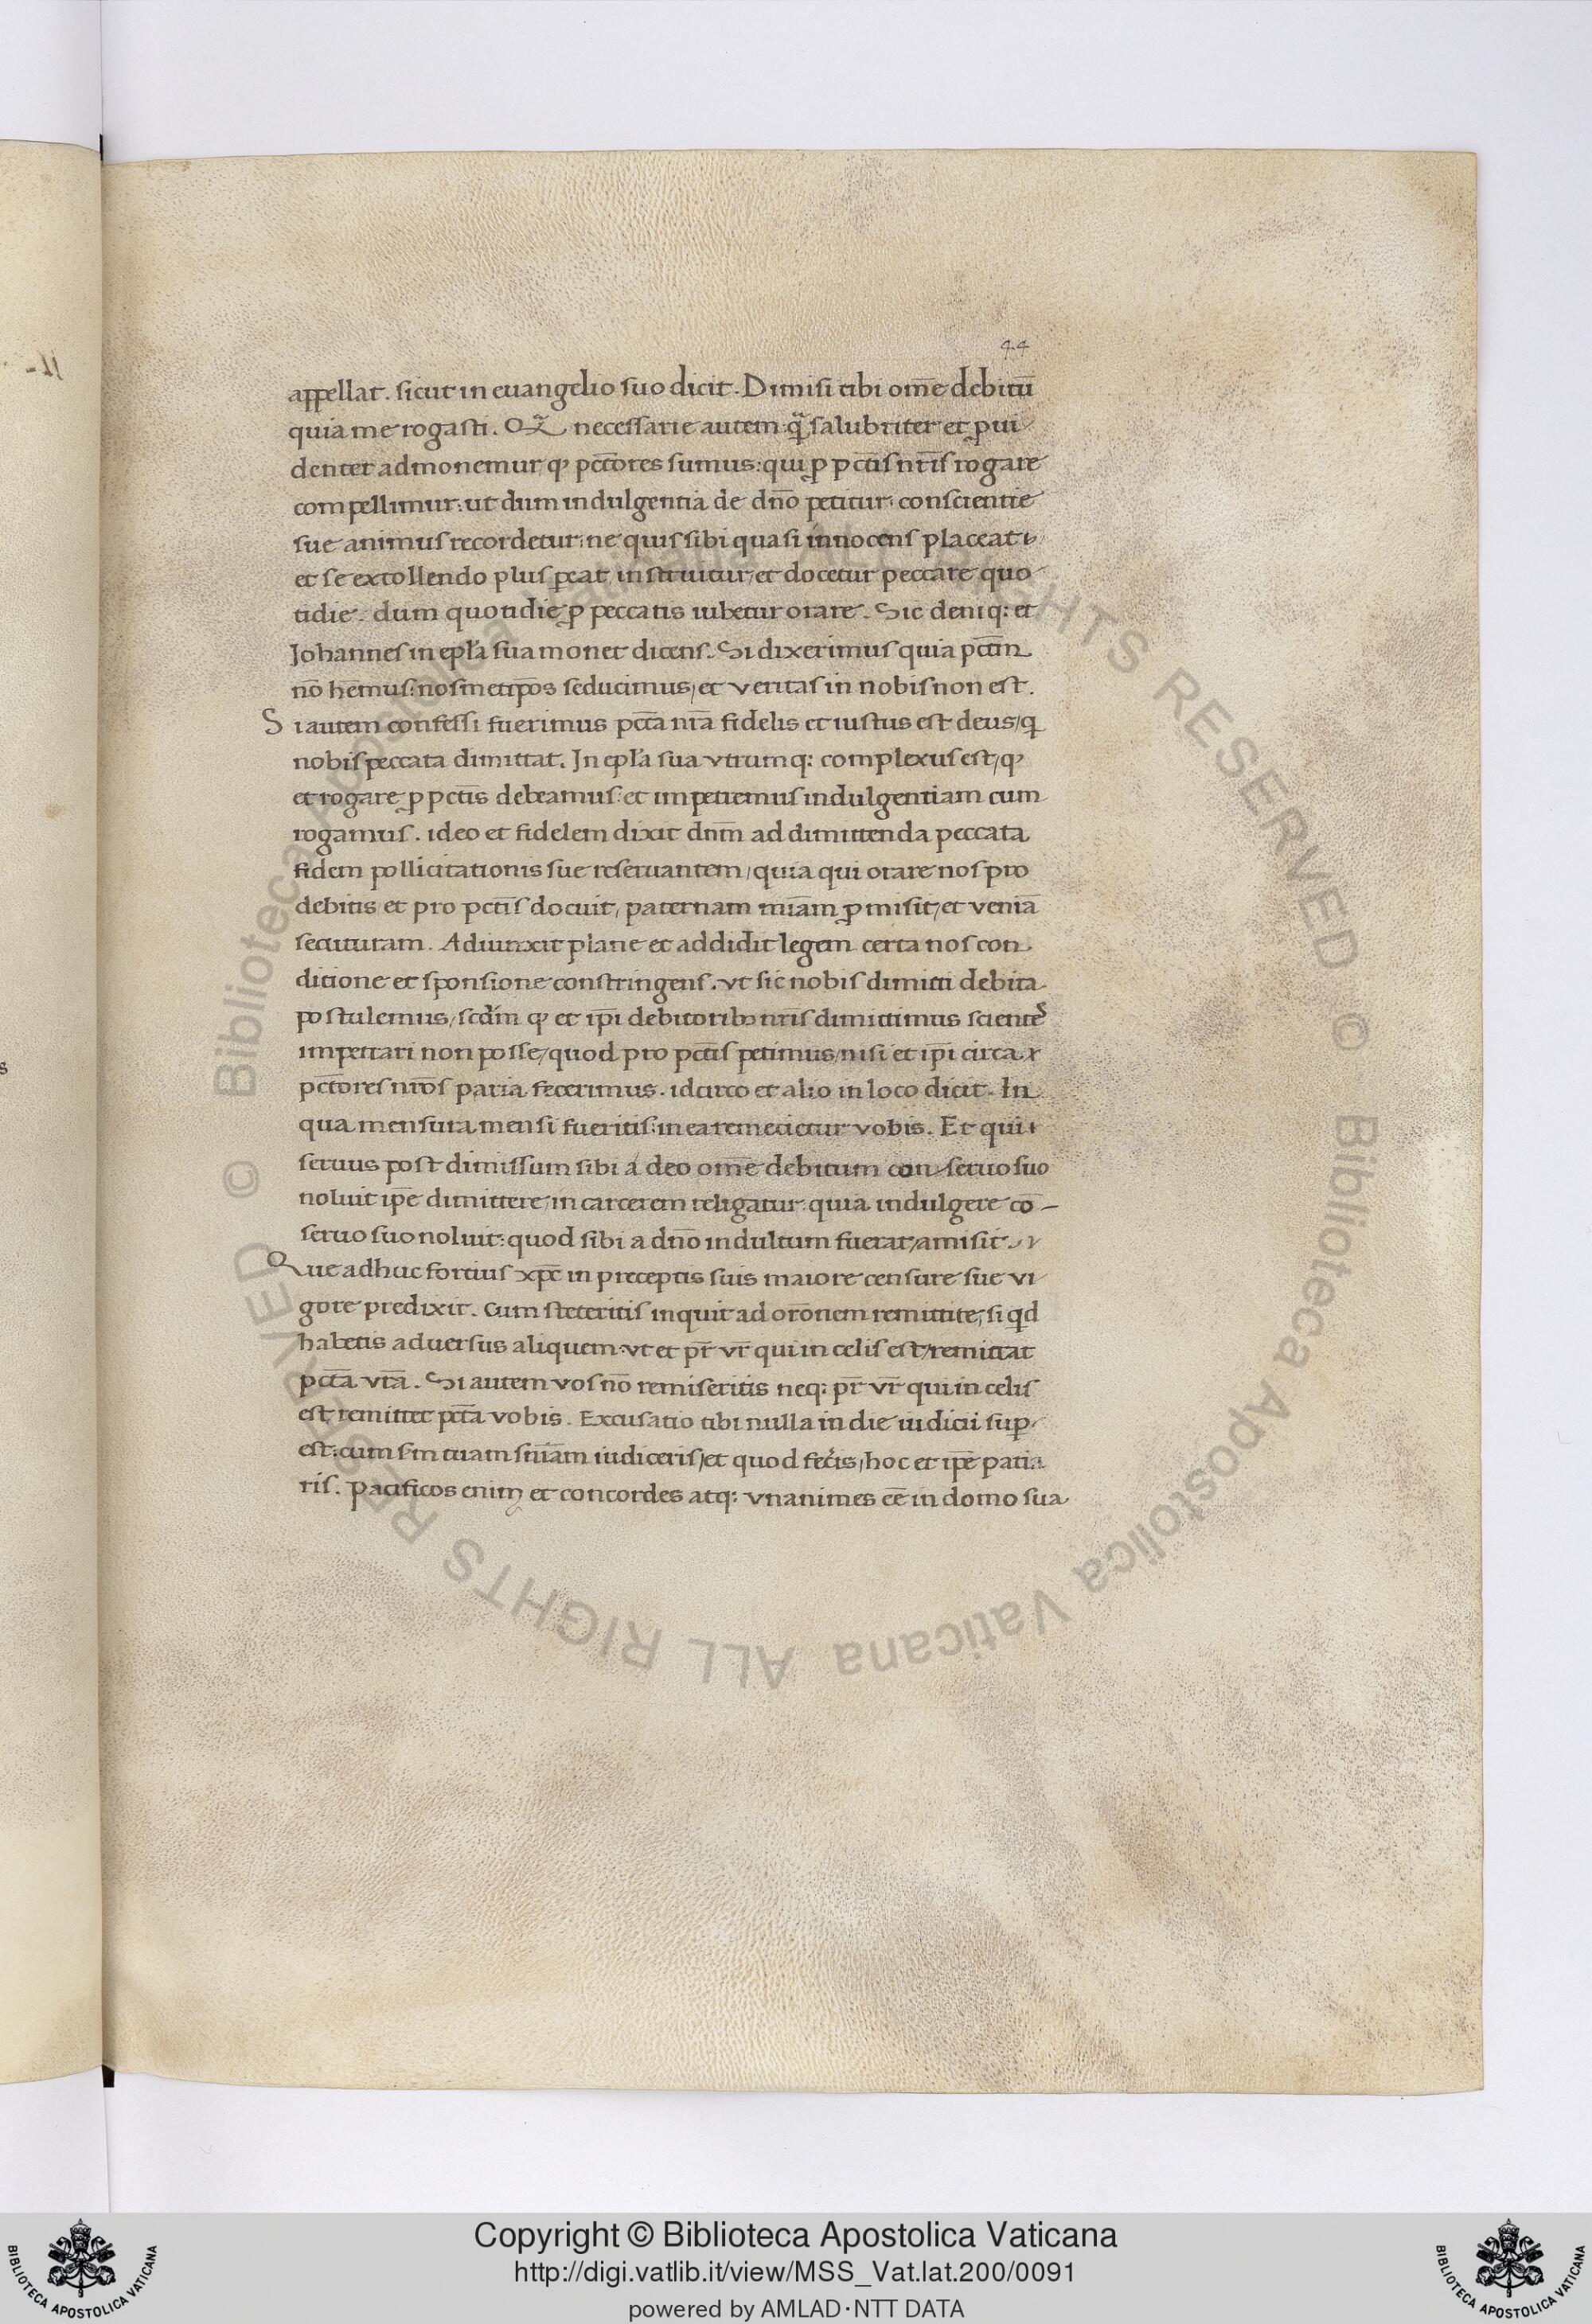 44
appellat. sicut in euangelio suo dicit. Dimisi tibi om̄e debitū
quia me rogasti. Q̄ necessarie autem q̄ salubriter et ꝓui
denter admonemur ꝙ pctōres sumus: qui ꝓ pctīs nrīs rogare
compellimur: ut dum indulgentia de dnō petitur: conscientie
sue animus recordetur: ne quis sibi quasi innocens placeat
et se extollendo plus ꝑeat, instruitur, et docetur peccare quo
tidie. dum quotidie ꝓ peccatis iubetur orare. Sic deniq: et
Johannes in epłā sua monet dicens. Si dixerimus quia pctm̄
nō hem̄us: nosmetipōs seducimus, et veritas in nobis non est.
Si autem confessi fuerimus pctā nrā fidelis et iustus est deus, q̄
nobis peccata dimittat. In epłā sua vtrumq: complexus est, ꝙ
et rogare ꝓ pctīs debeamus: et impetremus indulgentiam cum
rogamus. ideo et fidelem dixit dnm̄ ad dimittenda peccata
fidem pollicitationis sue reseruantem, quia qui orare nos pro
debitis et pro pctīs docuit, paternam miām ꝓmisit, et veniā
secuturam. Adiunxit plane et addidit legem certa nos con
ditione et sponsione constringens. vt sic nobis dimitti debita
postulemus, scdm̄ ꝙ et ip̄i debitoribꝫ nrīs dimittimus scientes
impetrari non posse, quod pro pctīs petimus, nisi et ip̄i circa
pctōres nrōs paria fecerimus. idcirco et alio in loco dicit. In
qua mensura mensi fueritis: in ea remecietur vobis. Et qui
seruus post dimissum sibi a deo om̄e debitum conseruo suo
noluit ip̄e dimittere, in carcerem religatur: quia indulgere cō-
seruo suo noluit: quod sibi a dnō indultum fuerat, amisit.
Que adhuc fortius xp̄c in preceptis suis maiore censure sue vi
gore predixit. Cum steteritis inquit ad orōnem remittite, si qd
habetis aduersus aliquem: vt et pr̄ vr̄ qui in celis est, remittat
pctā vrā. Si autem vos nō remiseritis neq: pr̄ vr̄ qui in celis
est, remittet pctā vobis. Excusatio tibi nulla in die iudicii suꝑ
est: cum sm̄ tuam sniām iudiceris, et quod fecis, hoc et ip̄e patia
ris. Pacificos enim et concordes atq: vnanimes eē in domo sua
Copyright © Biblioteca Apostolica Vaticana
http://digi.vatlib.it/view/MSS_Vat.lat.200/0091
powered by AMLAD·NTT DATA
BIBLIOTECA APOSTOLICA VATICANA
BIBLIOTECA APOSTOLICA VATICANA
© Biblioteca Apostolica Vaticana ALL RIGHTS RESERVED
© Biblioteca Apostolica Vaticana ALL RIGHTS RESERVED